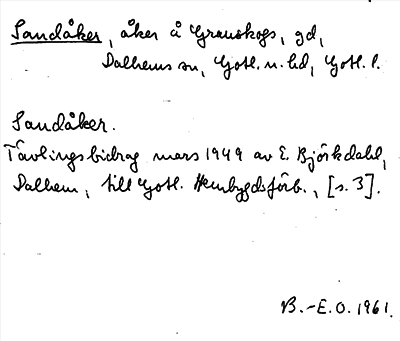 Sandåker, åker å Granskogs, gd,
Dalhems sn, Gotl. n. hd, Gotl. l.
Sandåker.
Tävlingsbidrag mars 1949 av E. Björkdahl,
Dalhem, till Gotl. Hembygdsförb., [s. 3].
B.-E.O. 1961.